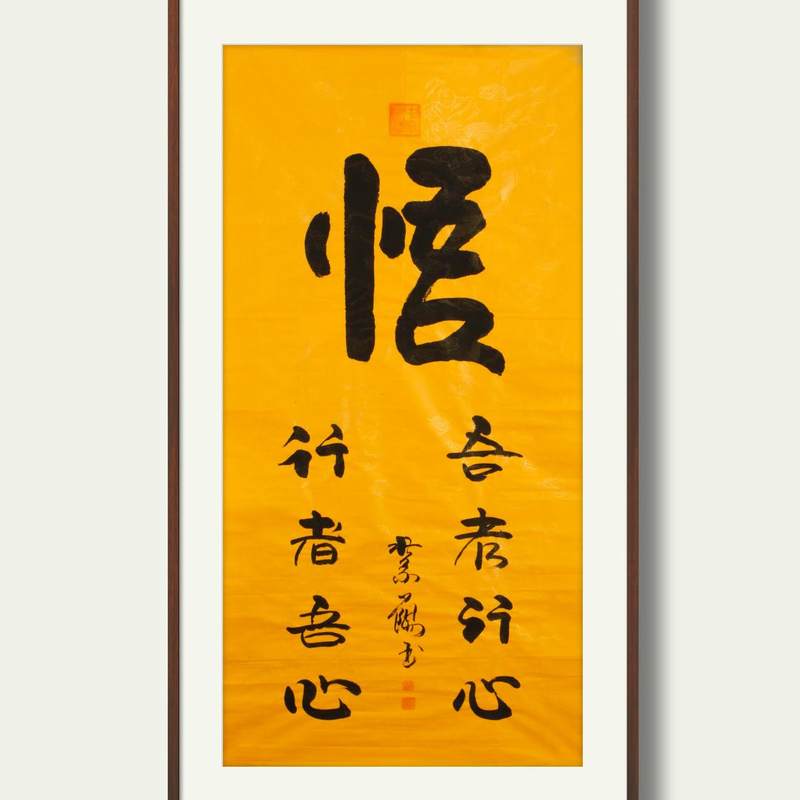 悟
吾者行心
行者吾心